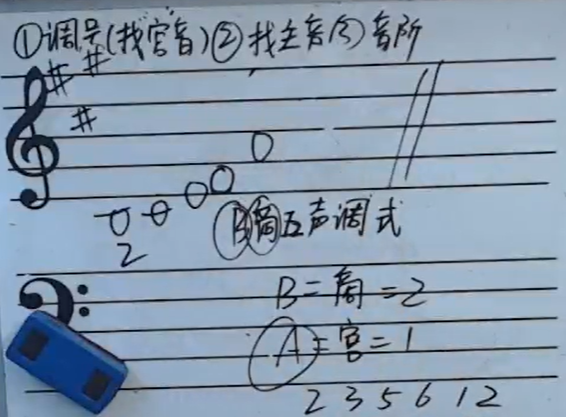 ①调号(找宫音)②找主音(3)音阶
# #
#
2
B商五声调式
B=商=2
A=宫=1
2 3 5 6 1 2